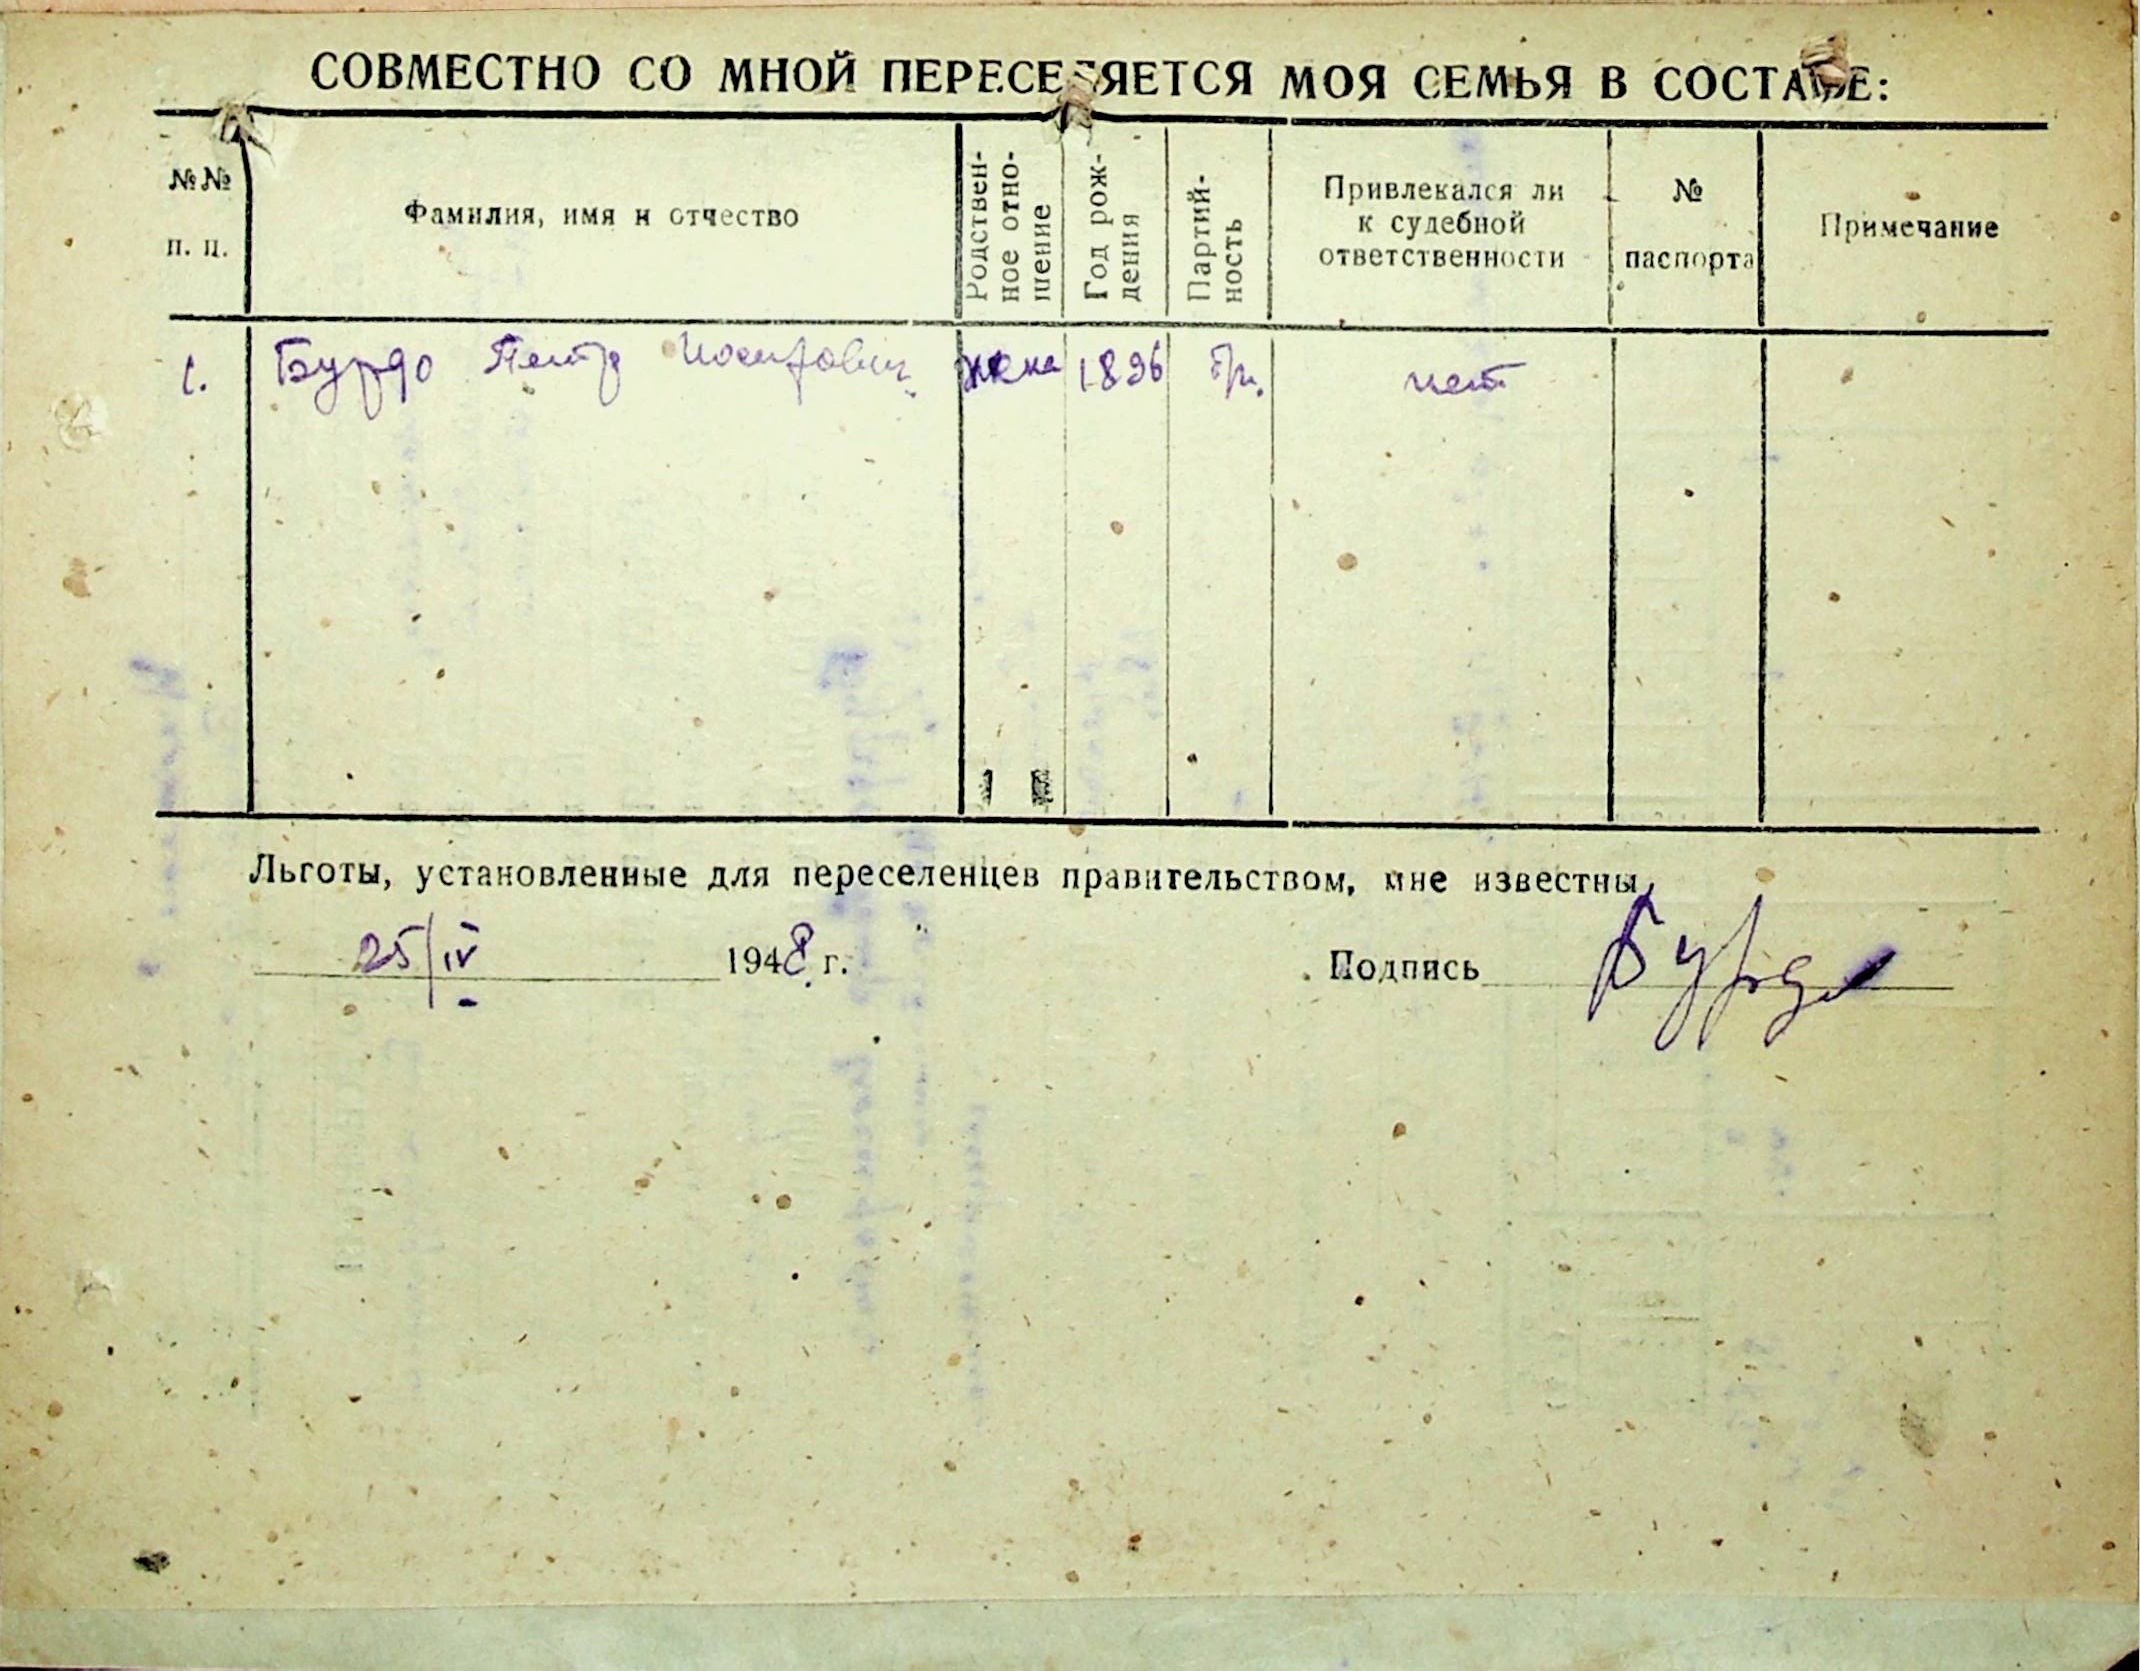 СОВМЕСТНО СО МНОЙ ПЕРЕСЕЛЯЕТСЯ МОЯ СЕМЬЯ В СОСТАВЕ:
№№ п. п.
Фамилия, имя и отчество
Родствен-
ное отно-
шение
Год рож-
дения
Партий-
ность
Привлекался ли
к судебной
ответственности
№
паспорта
Примечание
1. Бурдо Петр Иосифович жена 1896 б/п. нет
Льготы, установленные для переселенцев правительством, мне известны.
25/IV 1948 г. Подпись Бурдо